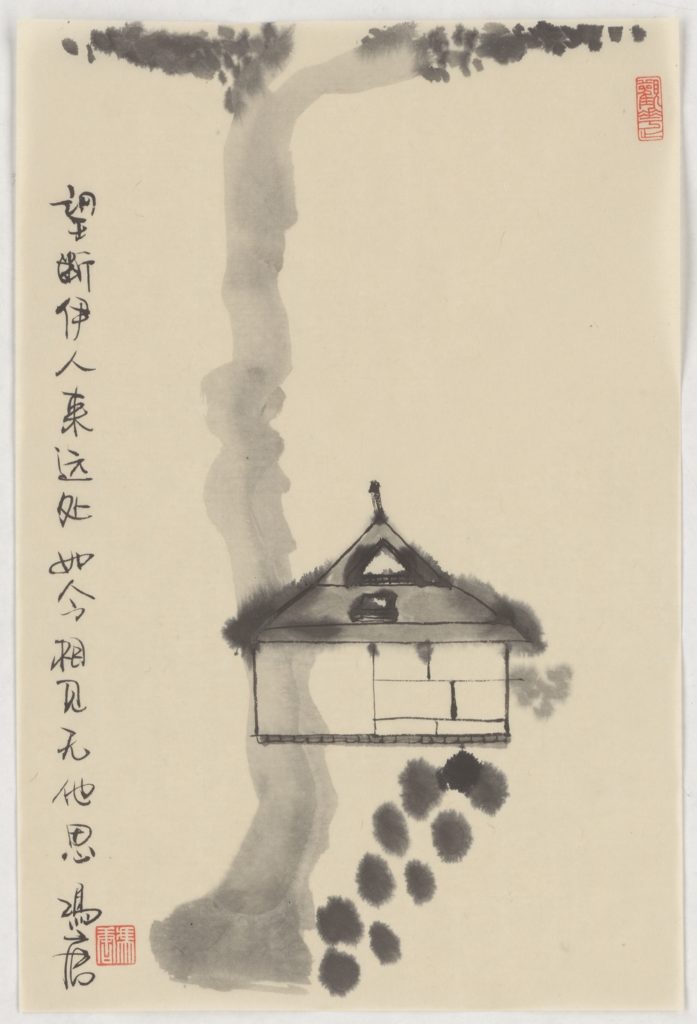 望断伊人来远处 如今相见无他思 冯唐